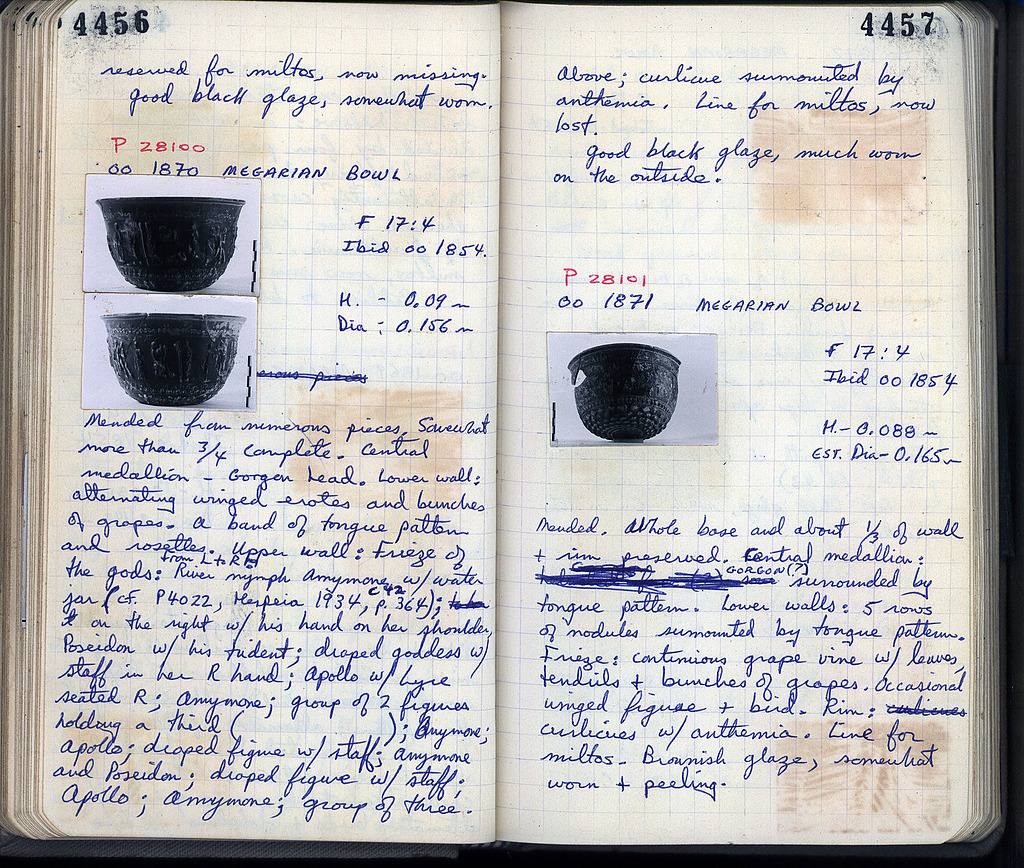 4456
reserved for miltos, now missing.
good black glaze, somewhat worn.
P 28100
OO 1870 MEGARIAN BOWL
F 17:4
Ibid OO 1854.
H. - 0.09 m
Dia: 0.156 m
Mended from numerous pieces. Somewhat
more than 3/4 complete. Central
medallion - Gorgon head. Lower wall:
alternating winged erotes and bunches
of grapes. A band of tongue pattern
and rosettes. Upper wall: Frieze of
the gods: from L to R: River nymph Amymone w/ water
jar (cf. P4022, Hesperia 1934, C42 p. 364);
on the right w/ his hand on her shoulder,
Poseidon w/ his trident; draped goddess w/
staff in her R hand; Apollo w/ Lyre
seated R; Amymone; group of 2 figures
holding a third ( ); Amymone;
Apollo; draped figure w/ staff; Amymone
and Poseidon; draped figure w/ staff;
Apollo; Amymone; group of three.
4457
above; curlicue surmounted by
anthemia. Line for miltos, now
lost.
good black glaze, much worn
on the outside.
P 28101
OO 1871 MEGARIAN BOWL
F 17:4
Ibid OO 1854
H. - 0.088 m
EST. Dia - 0.165 m
Mended. Whole base and about 1/3 of wall
+ rim preserved. Central medallion:
GORGON(?) surrounded by
tongue pattern. Lower walls: 5 rows
of nodules surmounted by tongue pattern.
Frieze: continuous grape vine w/ leaves,
tendrils + bunches of grapes. Occasional
winged figure + bird. Rim: curlicues
curlicues w/ anthemia. Line for
miltos. Brownish glaze, somewhat
worn + peeling.